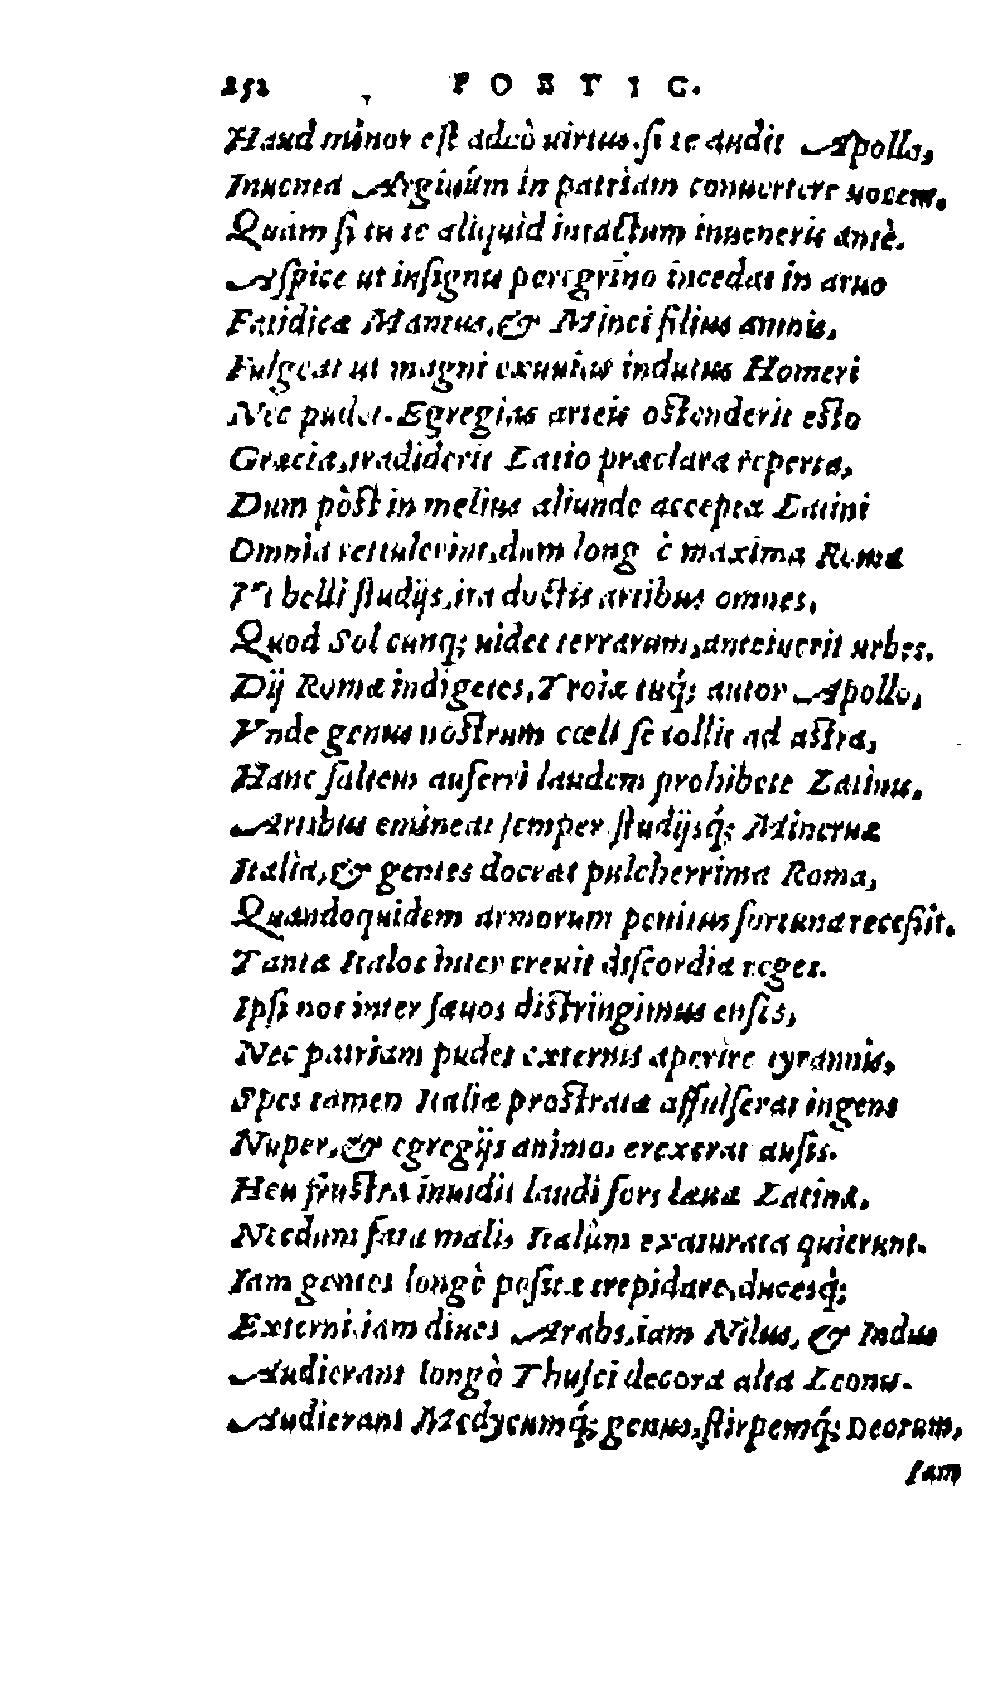 252 POETIC.
Haud minor est adeò uirtus, si te audit Apollo,
Inuenta Argiuûm in patriam conuertere uocem,
Quàm si tu te aliquid intactum inueneris antè.
Aspice ut insignis peregrino incedat in aruo
Fatidicæ Mantus, & Minci filius amnis,
Fulgeat ut magni exuuias indutus Homeri
Nec pudet. Egregias arteis ostenderit esto
Græcia, tradiderit Latio præclara reperta,
Dum pòst in melius aliunde accepta Latini
Omnia rettulerint, dum longè maxima Roma
Vt belli studijs, ita doctis artibus omnes,
Quod Sol cunq; uidet terrarum, anteiuerit urbes.
Dij Romæ indigetes, Troiæ tuq́; autor Apollo,
Vnde genus nostrum cœli se tollit ad astra,
Hanc saltem auferri laudem prohibete Latinis.
Artibus emineat semper studijsq́; Mineruæ
Italia, & gentes doceat pulcherrima Roma,
Quandoquidem armorum penitus fortuna recessit.
Tanta Italos inter creuit discordia reges.
Ipsi nos inter sæuos distringimus ensis,
Nec patriam pudet externis aperire tyrannis,
Spes tamen Italiæ prostratæ affulserat ingens
Nuper, & egregijs animos erexerat ausis.
Heu frustra inuidit laudi sors læua Latinæ,
Necdum fata malis Italûm exaturata quierunt.
Iam gentes longè positæ trepidare, ducesq́;
Externi, iam diues Arabs, iam Nilus, & Indus
Audierant longè Thusci decora alta Leonis.
Audierant Medycumq́; genus, stirpemq́; Deorum,
Iam